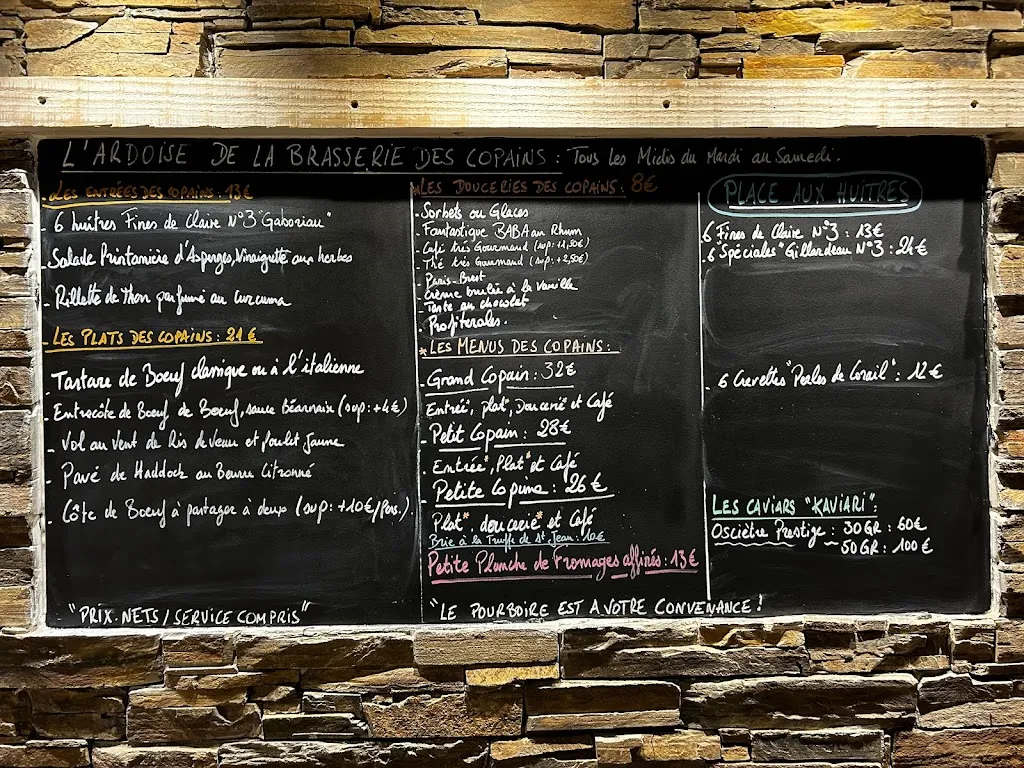 L'ARDOISE DE LA BRASSERIE DES COPAINS : Tous les Midis du Mardi au Samedi.
LES ENTRÉES DES COPAINS : 13€
- 6 huîtres Fines de Claire N°3 "Gaboriau"
- Salade Printanière d'Asperges, Vinaigrette aux herbes
- Rillette de Thon parfumé au curcuma
- LES PLATS DES COPAINS : 21€
- Tartare de Boeuf classique ou à l'italienne
- Entrecôte de Boeuf de Boeuf, sauce Béarnaise (sup: +4€)
- Vol au Vent de Ris de Veau et poulet jaune
- Pavé de Haddock au Beurre Citronné
- Côte de Boeuf à partager à deux (sup: +10€/Pers.)
"PRIX NETS / SERVICE COMPRIS"
LES DOUCERIES DES COPAINS : 8€
- Sorbets ou Glaces
- Fantastique BABA au Rhum
- Café très Gourmand (sup: +1,50€)
- Thé très Gourmand (sup: +2,50€)
- Paris-Brest
- Crème brûlée à la vanille
- Tarte au chocolat
- Profiteroles.
* LES MENUS DES COPAINS :
- Grand Copain : 32€
Entrée*, plat*, Doucerie* et Café
- Petit Copain : 28€
. Entrée*, Plat* et Café
- Petite Copine : 26€
. Plat*, doucerie* et Café
Brie à la Truffe de St Jean : 10€
Petite Planche de Fromages affinés : 13€
"LE POURBOIRE EST A VOTRE CONVENANCE !
PLACE AUX HUÎTRES
. 6 Fines de Claire N°3 : 13€
. 6 "Spéciales" Gillardeau N°3 : 21€
. 6 Crevettes "Perles de Corail" : 12€
LES CAVIARS "KAVIARI" :
Osciètre Prestige : 30GR : 60€
50GR : 100€